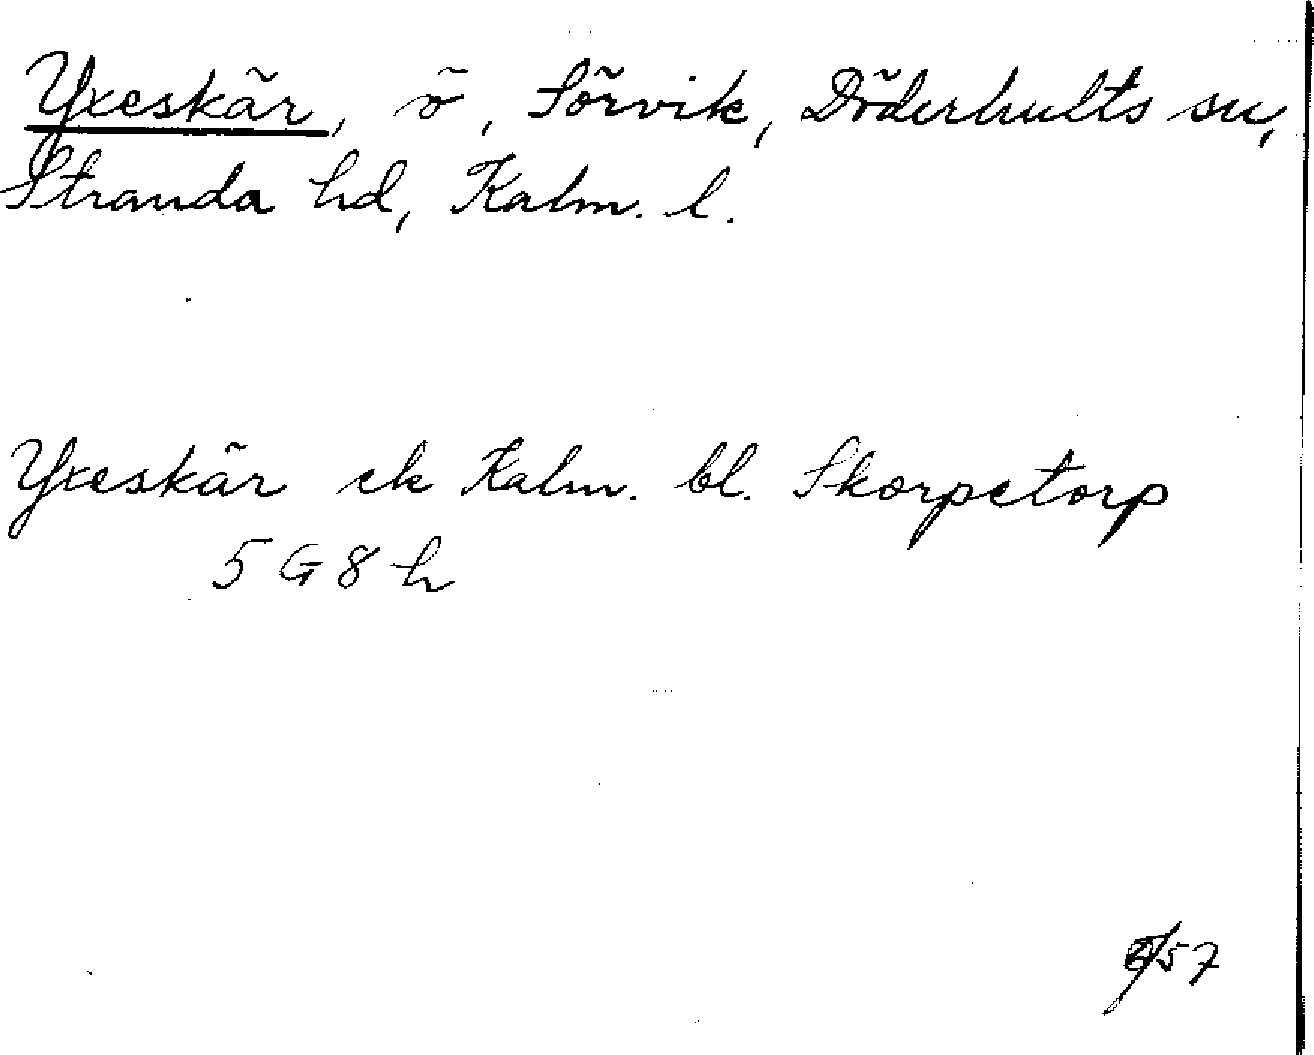 Yxeskär, ö, Sörvik, Döderhults sn,
Stranda hd, Kalm. l.
Yxeskär ek Kalm. bl. Skorpetorp
5 G 8 h